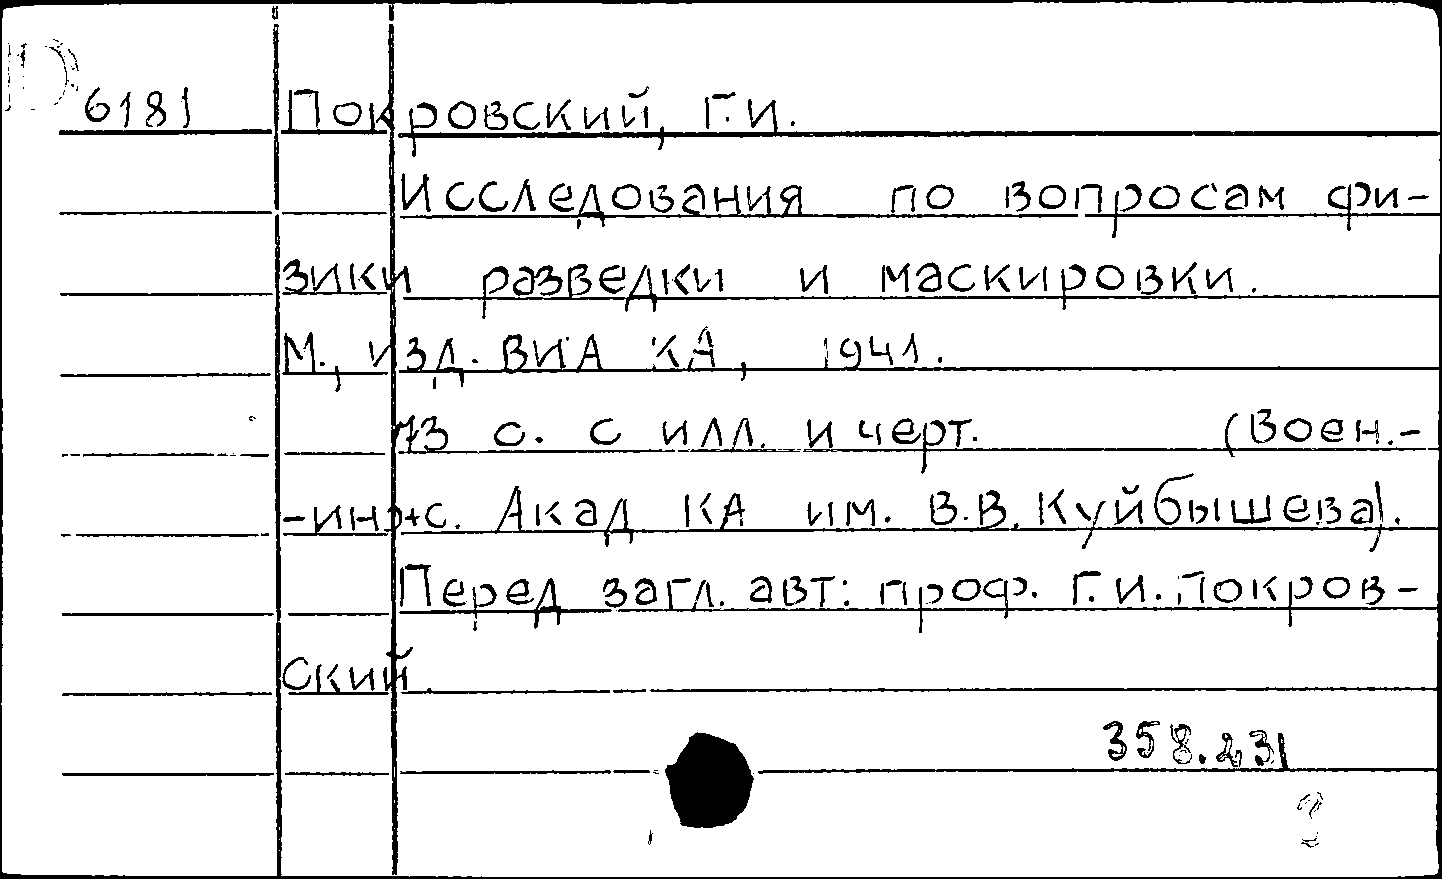 6181 Покровский, Г.И.
Исследования по вопросам фи-
зики разведки и маскировки.
М., изд. ВИА КА, 1941.
73 с. с илл. и черт. (Воен.-
-инж. Акад КА им. В.В. Куйбышева).
Перед загл. авт: проф. Г.И. Покров-
ский.
358.231